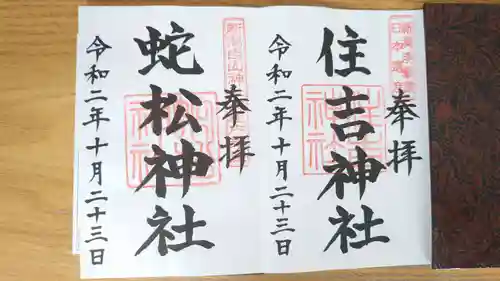 奉拝
住吉神社
令和二年十月二十三日
奉拝
蛇松神社
令和二年十月二十三日